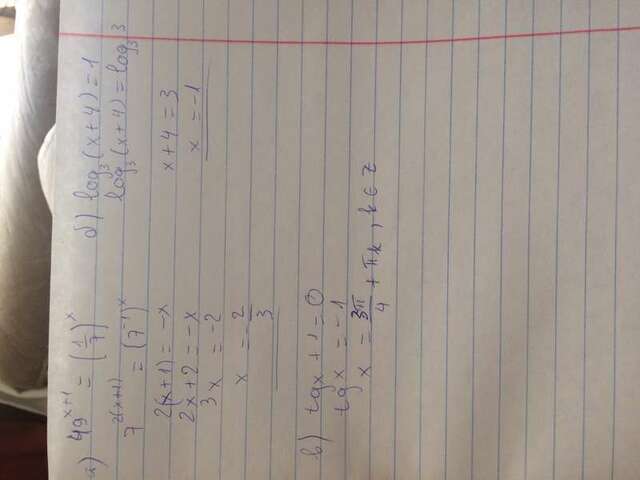 а) 49^(x+1) = (1/7)^x
7^(2(x+1)) = (7^(-1))^x
2(x+1) = -x
2x+2 = -x
3x = -2
x = -2/3
б) log₃(x+4) = 1
log₃(x+4) = log₃ 3
x+4 = 3
x = -1
в) tgx + 1 = 0
tgx = -1
x = 3π/4 + πk, k ∈ Z